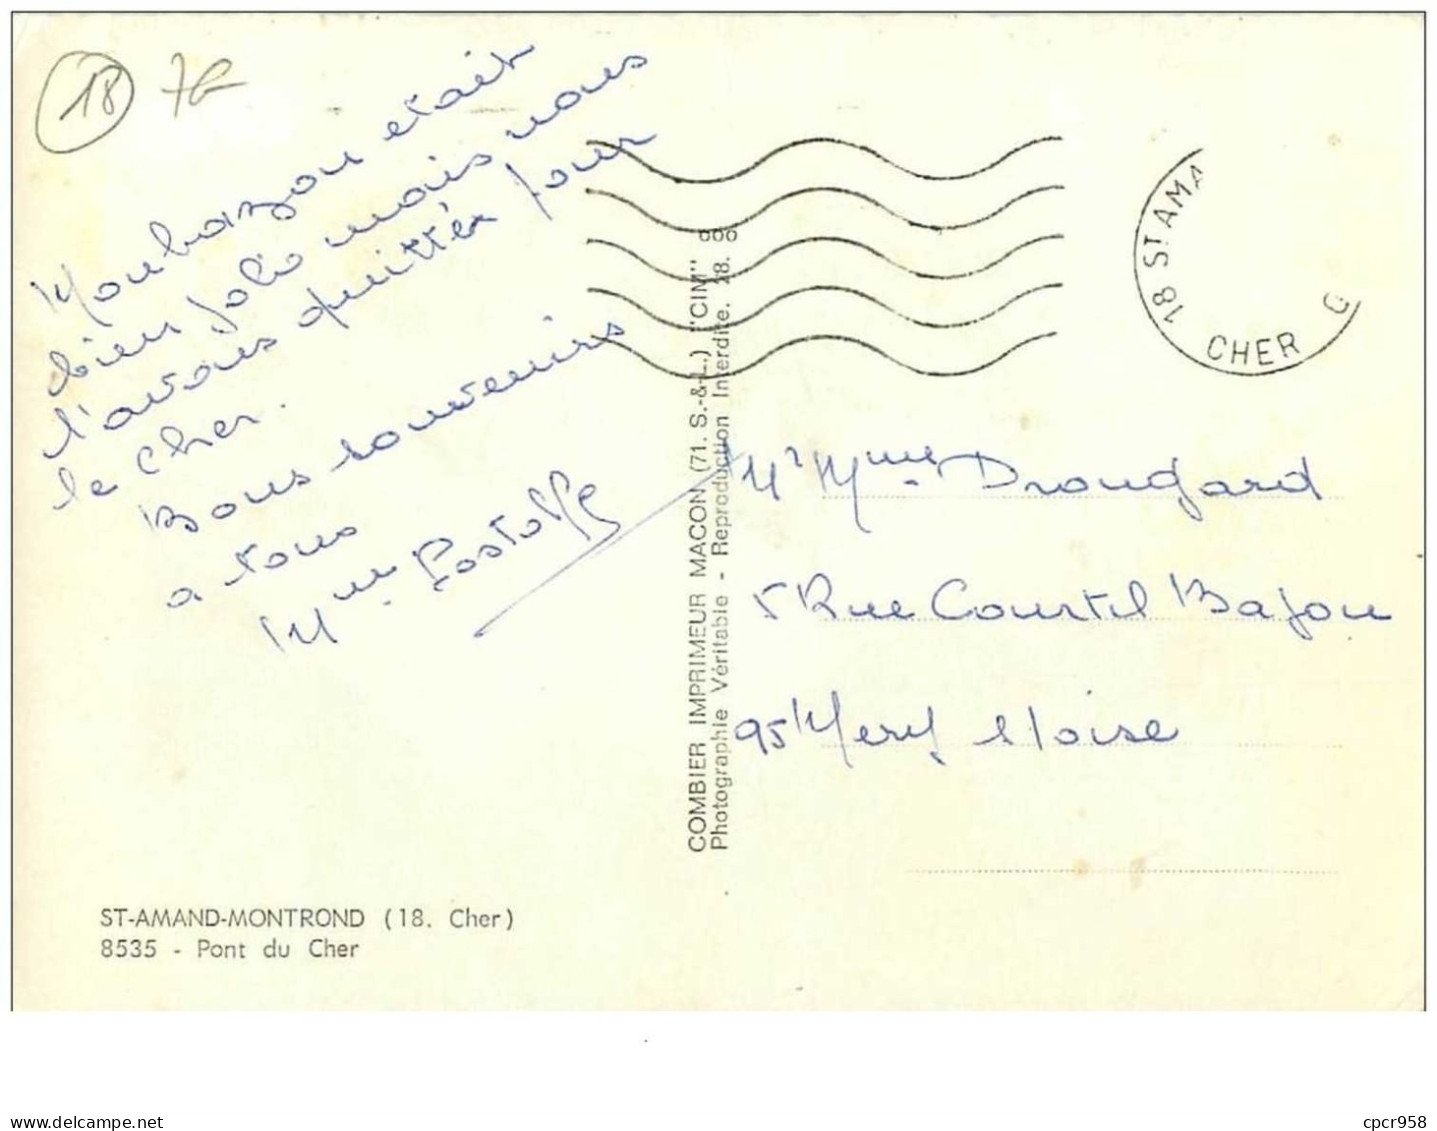 18 7G
Monbazon etait
bien joli mais nous
l'avons quitter pour
le Cher.
Bons souvenirs
a tous
Mme Postoffe
COMBIER IMPRIMEUR MACON (71. S.-&-L.) "CIM"
Photographie Véritable - Reproduction Interdite. 28.
18 ST AMA
CHER
Mr Mme Drougard
5 Rue Courtil Bajou
95 Mery s/oise
ST-AMAND-MONTROND (18. Cher)
8535 - Pont du Cher
delcampe.net
cpcr958